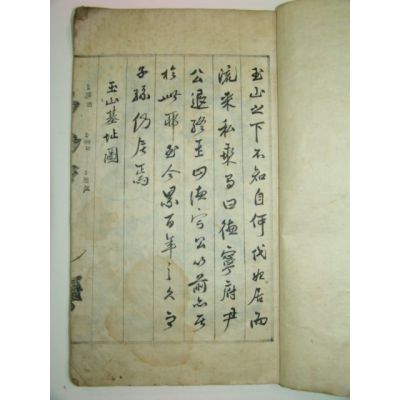 玉山之下不知自何代始居而
流來私乘有曰德寧府尹
公退終玉山德寧公以前亦居
於此耶至今累百年之久而
子孫仍居焉
玉山基址圖